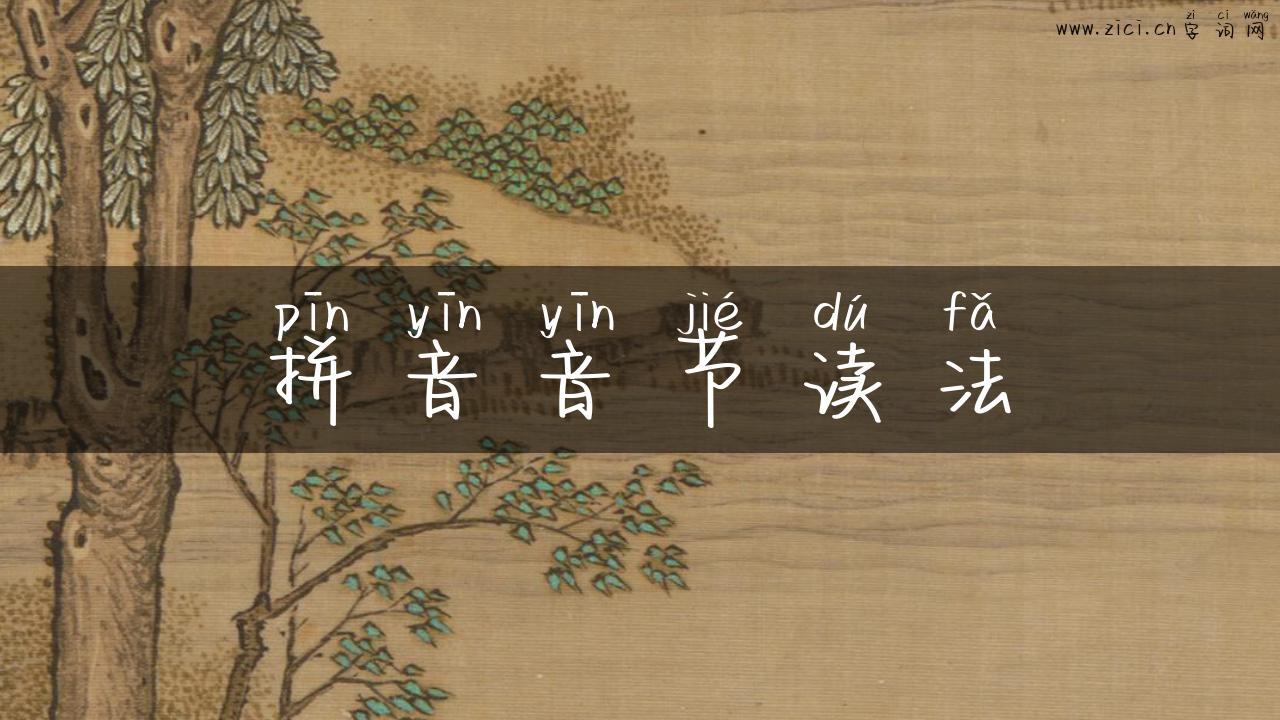 zì cí wǎng
www.zici.cn 字词网
pīn yīn yīn jié dú fǎ
拼音音节读法